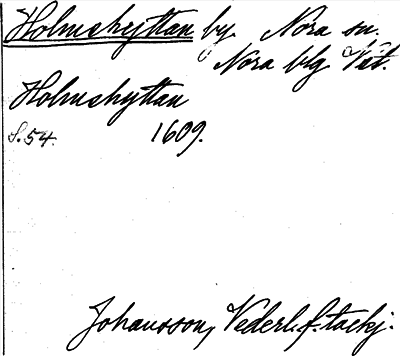 Holmshyttan by. Nora sn.
Nora blg Vstt.
Holmshyttan
S. 54. 1609.
Johansson, Vederl. f. tackj.